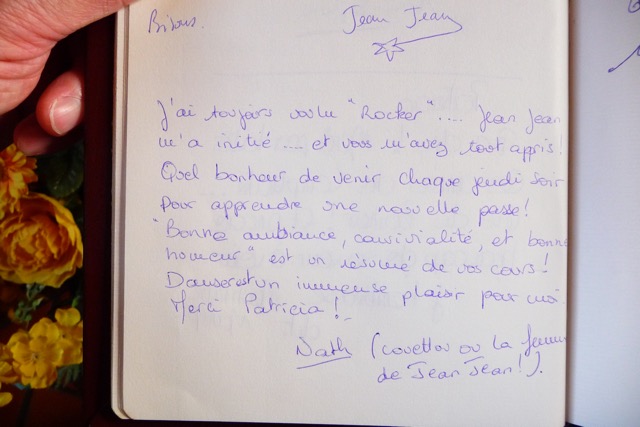 Bisous.
Jean Jean
J'ai toujours voulu "Rocker".... Jean Jean
m'a initié .... et vous m'avez tout appris!
Quel bonheur de venir chaque jeudi soir
pour apprendre une nouvelle passe!
"Bonne ambiance, convivialité, et bonne
humeur" est un résumé de vos cours!
Danser est un immense plaisir pour moi.
Merci Patricia!
Nath (ou la femme
de Jean Jean!).